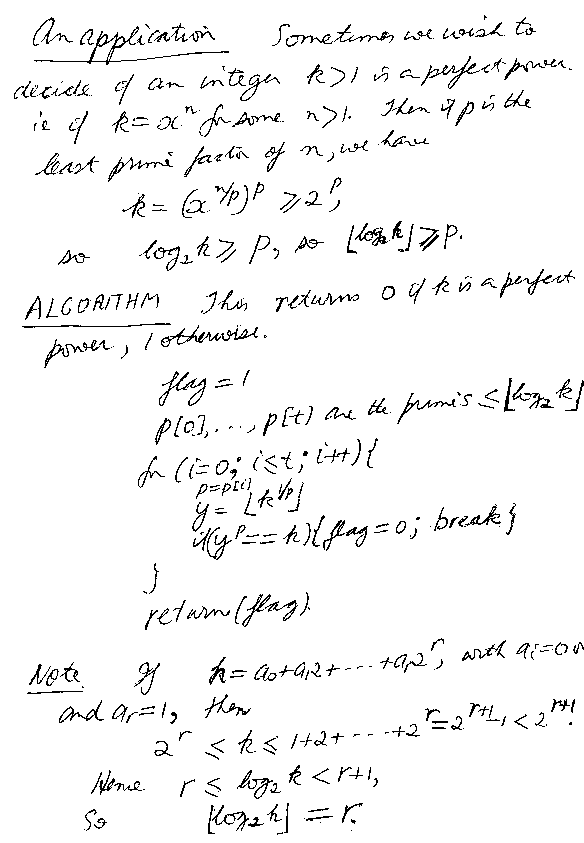 An application Sometimes we wish to
decide if an integer k>1 is a perfect power.
ie if k = x^n for some n>1. Then if p is the
least prime factor of n, we have
k = (x^{n/p})^p ⩾ 2^p,
so log₂k ⩾ p, so ⌊log₂k⌋ ⩾ p.
ALGORITHM This returns 0 if k is a perfect
power, 1 otherwise.
flag = 1
p[0], ..., p[t] are the primes ≤ ⌊log₂ k⌋
for (i=0; i≤t; i++){
p=p[i]
y = ⌊k^{1/p}⌋
if(y^p == k){flag=0; break}
}
return(flag).
Note. If k = a₀+a₁2+···+aᵣ2^r, with aᵢ=0 or
and aᵣ=1, then
2^r ≤ k ≤ 1+2+···+2^r = 2^{r+1}-1 < 2^{r+1}.
Hence r ≤ log₂ k < r+1,
So ⌊log₂k⌋ = r.